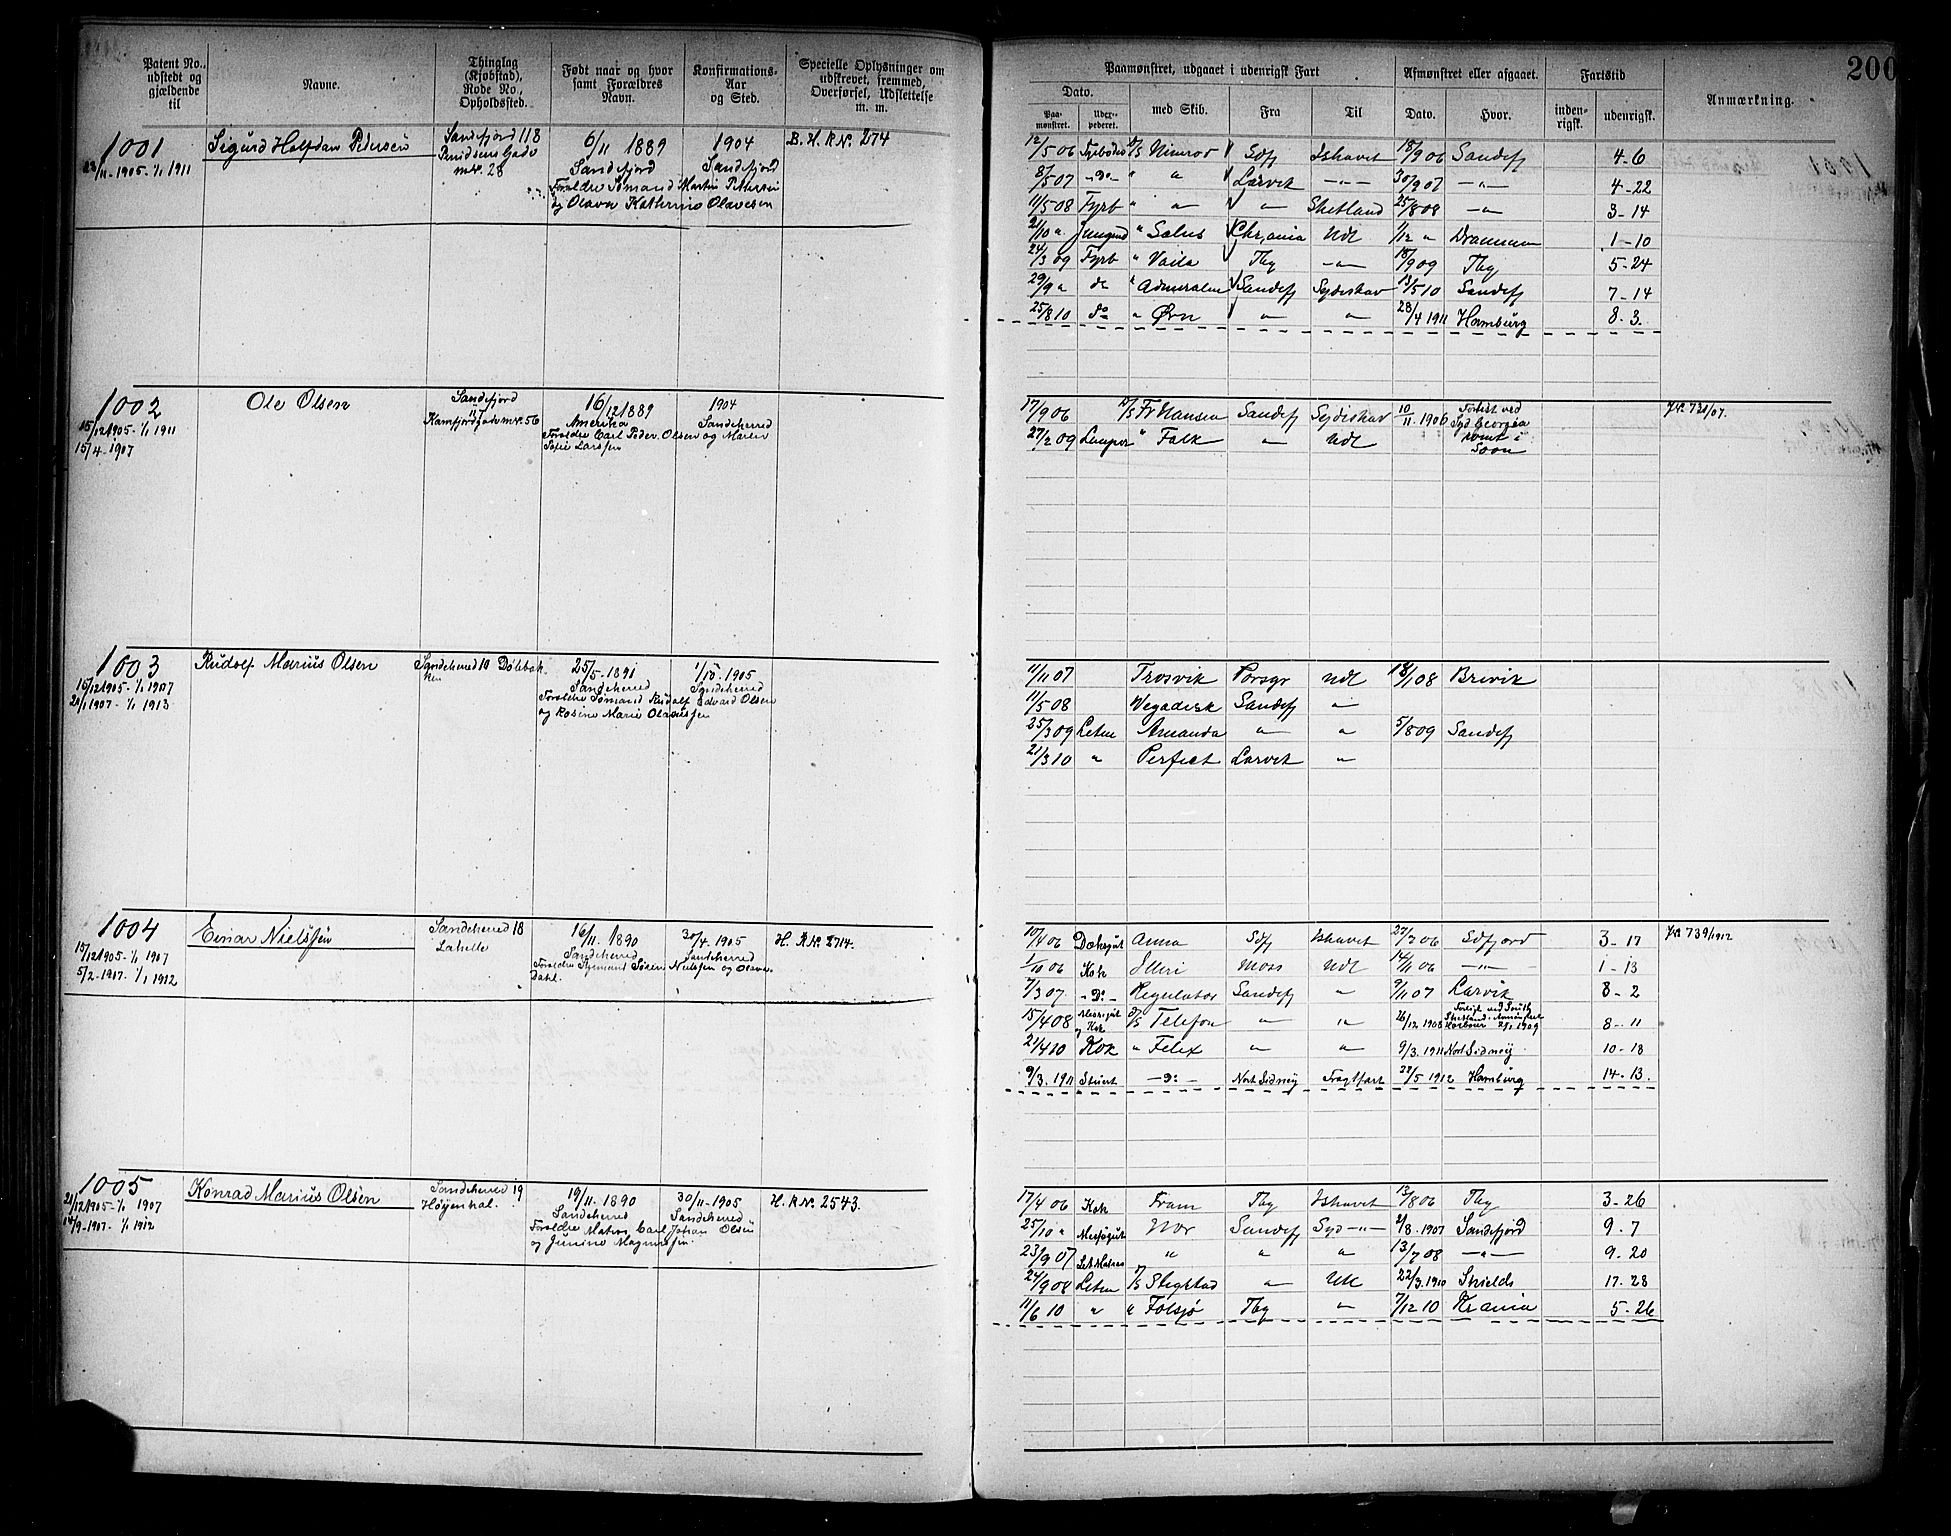 Patent No., udstedt og gjældende til
Navne.
Thinglag (Kjøbstad), Rode No., Opholdssted.
Født naar og hvor samt Forældres Navn.
Konfirmations-Aar og Sted.
Specielle Oplysninger om udskrevet, fremmed, Overførsel, Udslettelse m. m.
1001
11-1905-1/1 1911
Sigurd Halfdan Pedersen
Sandefjord 118
Gade
mr. 28
6/11 1889
Sandefjord
Forældre Sømand Martin Pettersen
og Olava Kathrine Olavesen
1904
Sandefjord
B. H. R No. 274
1002
15/12 1905-1/1 1911
15/4-1907
Ole Olsen
Sandefjord
Kamfjordgade mr. 56
16/12 1889
Amerika
Forældre Carl Peder Olsen og Maren
Sofie Larssen
1904
Sandeherred
1003
15/12 1905-1/1 1907
1907-1/1 1913
Rudolf Marius Olsen
Sandeherred 10
25/5-1891
Sandeherred
Forældre Sømand Rudolf Edvard Olsen
og Rosine Marie Olavussen
1/10-1905
Sandeherred
1004
15/12 1905-1/1 1907
5/2-1907-1/1 1912
Einar Nielssen
Sandeherred 18
Lahelle
16/11. 1890
Sandeherred
Forældre Sømand Søren Nielssen og Olava
Dahl.
30/4. 1905
Sandeherred
H. R No. 2714.
1005
21/12 1905-1/1 1907
1907-1/1 1912
Konrad Marius Olsen
Sandeherred 19
Høyenhal.
19/11. 1890
Sandeherred
Forældre Matros Carl Johan Olsen
og Magnussen
30/11-1905
Sandeherred
H. R No. 2543.
200
Paamønstret, udgaaet i udenrigsk Fart
Afmønstret eller afgaaet.
Fartstid
Anmærkning.
Dato.
Paamønstret.
med Skib.
Fra
Til
Dato.
Hvor.
indenrigsk.
udenrigsk.
12/5 06 Fyrbøder D/S Nimrod Sdfj Ishavet 18/9 06 Sandefj 4-6
8/5 07 -Do- " " Larvik -"- 30/9 07 -"- 4-22
11/5 08 Fyrb " " " Shetland 25/8 08 -"- 3-14
21/10 " Jungmd " Sælus Chr,ania Udl 1/12 " Drammen 1-10
24/3 09 Fyrb " Vaila Tbg -"- 18/9 09 Tbg 5-24
29/9 " do " Admiralen Sandefj Sydishav 13/5 10 Sandefj 7-14
25/8 10 do " Ørn " " 28/4 1911 Hamburg 8-3.
17/9 06 D/S Fr Nansen Sandefj Sydishav 10/11 1906 Forlist ved Syd Georgia
J.No. 731/07.
27/2 09 " Falk " Udl rømt i
11/11 07 Trosvik Porsgr Udl 18/1 08 Brevik
11/5 08 Vegadesk Sandefj "
25/3 09 Letm Amanda " " 5/8 09 Sandefj
21/3 10 " Perfect Larvik "
10/4 06 Dæksgut Anna Sdfj Ishavet 27/7 06 Sdfjord 3-17
J.No. 739/1912
1/10 06 Kok Moss Udl 14/11 06 -"- 1-13
7/3 07. -Do- Regulator Sandefj " 9/11 07 Larvik 8-2
15/4 08 Messegut og Kok D/S Telefon " " 26/12 1908 Forligt ved South Shetland. 1909 8-11
21/4 10 Kok " Felix " " 9/3. 1911 Nort Sidneÿ 10-18
9/3. 1911 Stuert -Do- Nort Sidneÿ Fragtfart 28/5 1912 Hamburg 14-13.
17/4 06 Kok Fram Tbg Ishavet 13/8 06 Tbg 3-26
25/10 " Messegut Nor Sandefj Syd-"- 2/8-1907 Sandefjord 9-7
23/9 07 Let Matros " " " 13/7 08 -"- 9-20
24/9 08 Letm D/S Skegstad " Udl 22/3. 1910 Shields 17-28
11/6 10 " " Folsjø Tbg " 7/12 10 Krania 5-26